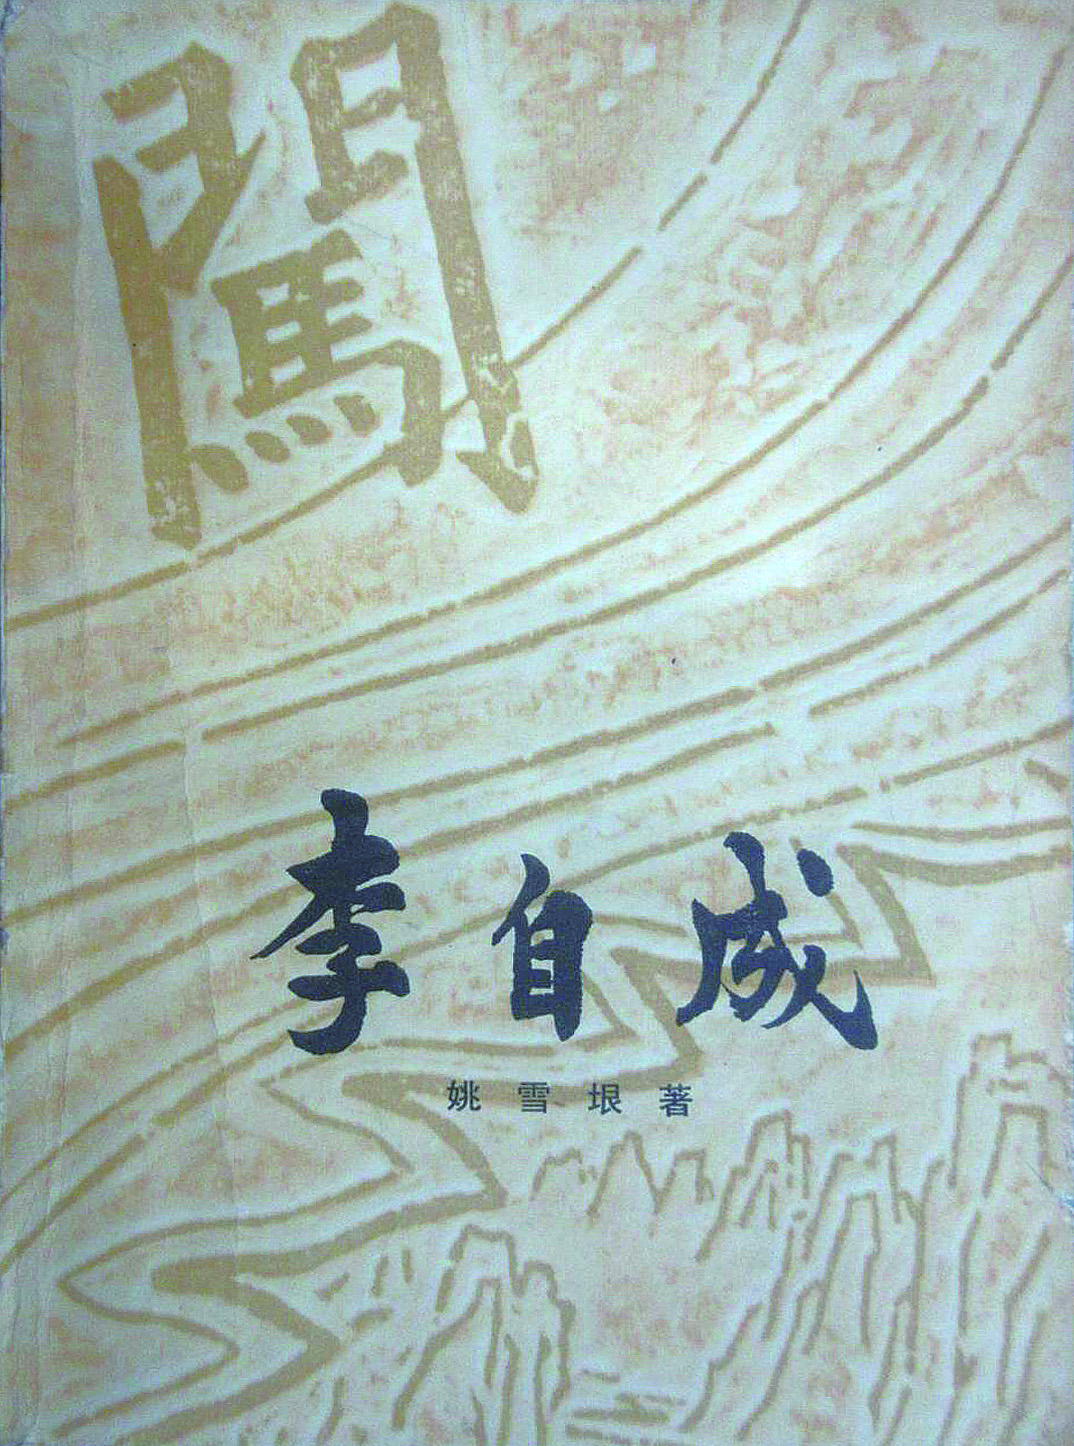 闖
李自成
姚雪垠著